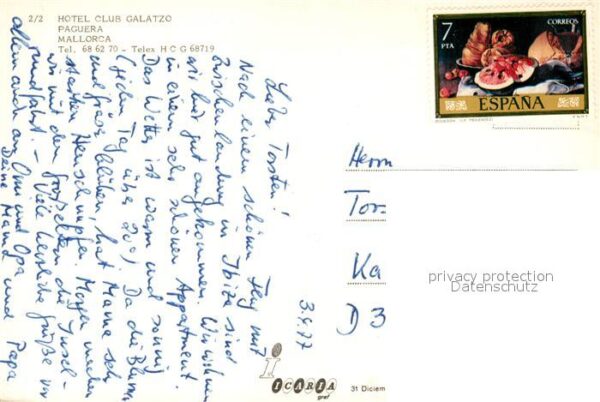 2/2 HOTEL CLUB GALATZO
PAGUERA
MALLORCA
Tel. 68 62 70 - Telex H C G 68719
Lieber Torsten!
Nach einem schönen Flug mit
Zwischenlandung in Ibiza sind
wir hier gut angekommen. Wir wohnen
in einem sehr schönen Appartment.
Das Wetter ist warm und sonnig
(jeden Tag über 20°). Da die Blumen
und Gräser blühen, hat Mama sehr
starken Heuschnupfen. Morgen machen
wir mit den Großeltern die Insel-
rundfahrt. - Viele herzliche Grüße von
allen auch an Omi und Opa
Deine Mama und Papa
7
PTA
CORREOS
ESPAÑA
Herrn
Tor
Ka
D 3
3.4.77
privacy protection
Datenschutz
i
ICARIA
graf
31 Diciem